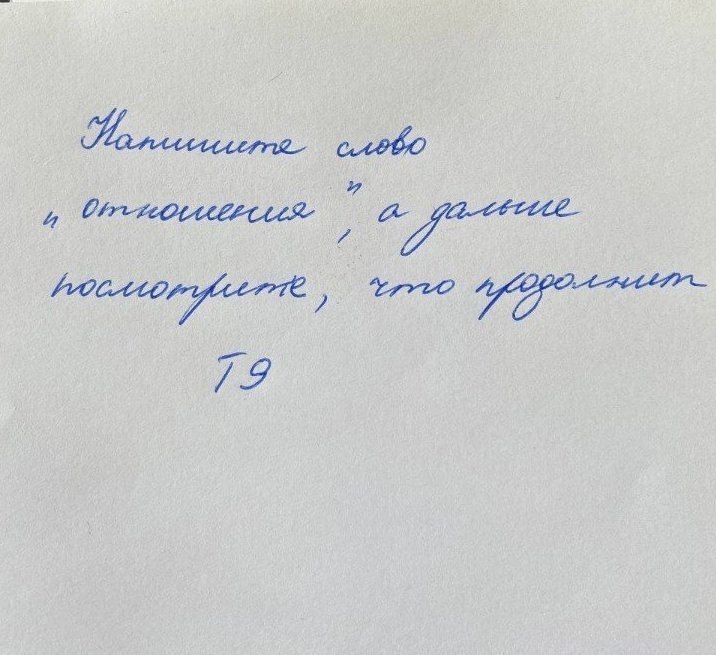 Напишите слово
„отношения", а дальше
посмотрите, что продолжит
Т9